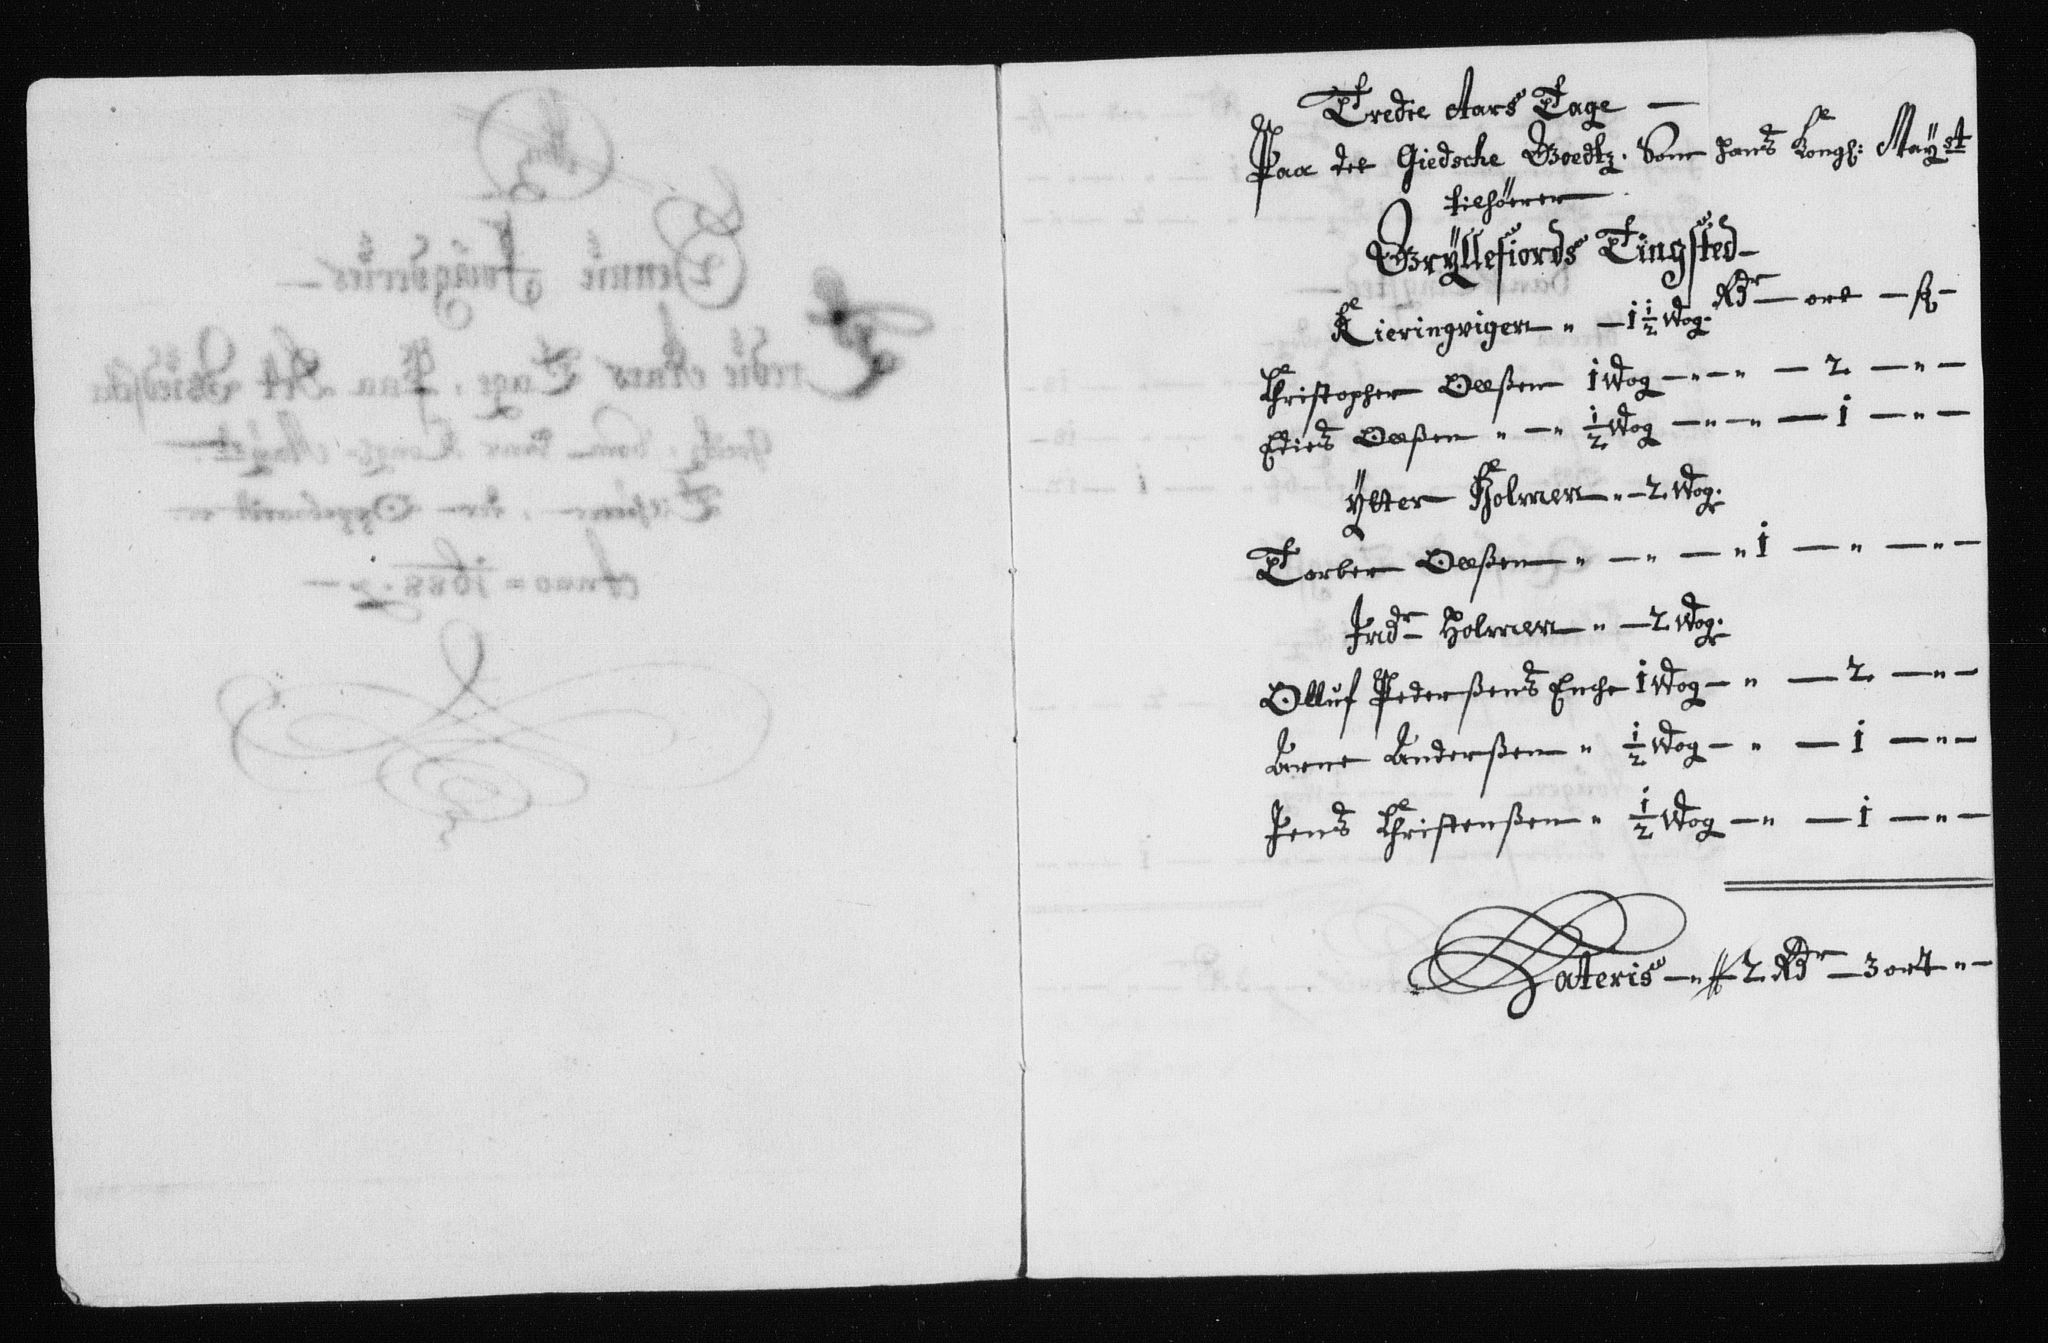 Tredie Aars Tage —
Paa det Giedsche Goedtz. Som hans Kongl: Mayst
tilhörer
Gryllefiords Tingsted —
Rdr — ort — ß —
Kieringvigen „ — 1½ Wog.
Christopher Olßen 1 Wog — „ — „ — 2 — „ —
Elies Olßen „ — „ ½ Wog — „ — „ — 1 — „ —
Ytter Holmen „ — 2 Wog.
Torber Olßen „ — „ — „ 1 — „ — „ —
Indr Holmen „ — 2 Wog.
Olluf Pederßens Enche 1 Wog — „ — 2 — „ —
Arne Anderßen „ ½ Wog — „ — 1 — „ —
Jens Christenßen „ ½ Wog — „ — 1 — „ —
Lateris — „ 2 Rdr — 3 ort „ —